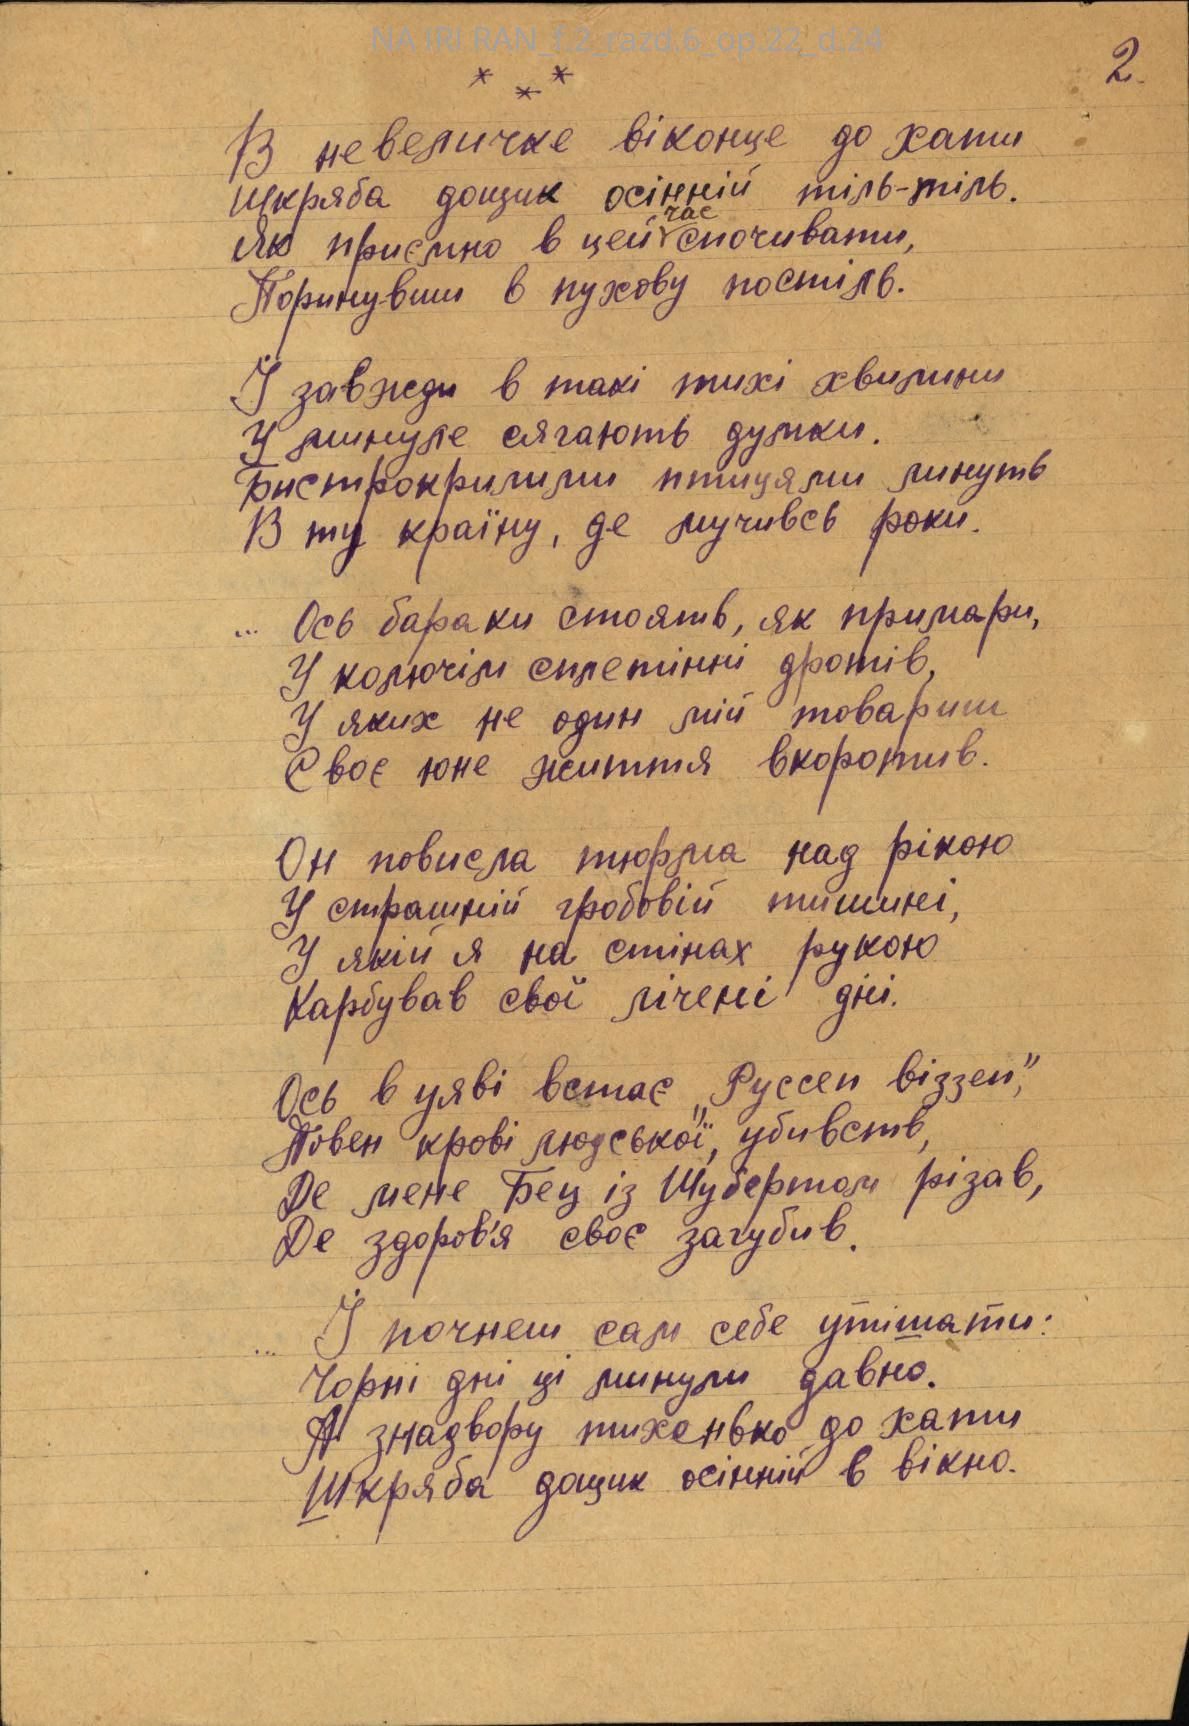 NA IRI RAN_f.2_razd.6_op.22_d.24
2.
* * *
В невеличке віконце до хати
Шкряба дощик осінній тіль-тіль.
Як приємно в цей час спочивати,
Поринувши в пухову постіль.
І завжди в такі тихі хвилини
У минуле сягають думки.
Бистрокрилими птицями линуть
В ту країну, де мучивсь роки.
... Ось бараки стоять, як примари,
У колючім сплетінні дротів,
У яких не один мій товариш
Своє юне життя вкоротив.
Он повисла тюрма над рікою
У страшній гробовій тишині,
У якій я на стінах рукою
Карбував свої лічені дні.
Ось в уяві встає „Руссен віззен",
Повен крові людської, убивств,
Де мене Бец із Шубертом різав,
Де здоров'я своє загубив.
... І почнеш сам себе утішати:
Чорні дні ці минули давно.
А знадвору тихенько до хати
Шкряба дощик осінній в вікно.